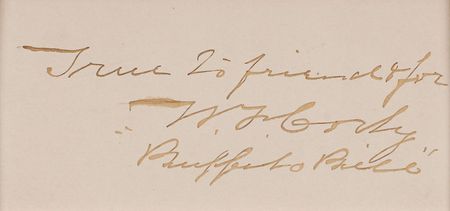 True to friend & foe
W. F. Cody
"Buffalo Bill"